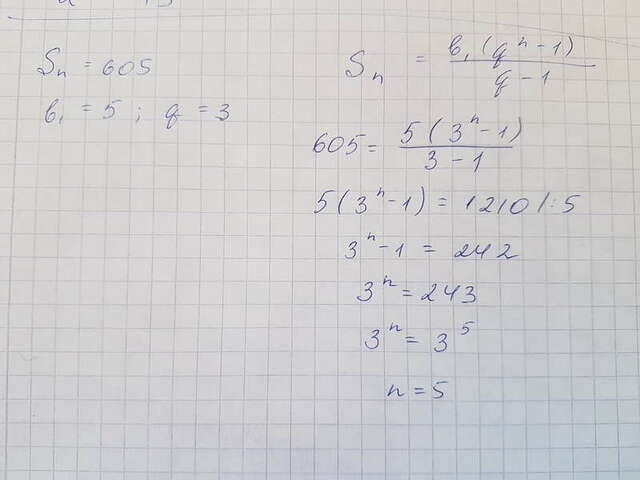 Sₙ = 605
b₁ = 5 ; q = 3
Sₙ = b₁(qⁿ - 1) / q - 1
605 = 5(3ⁿ - 1) / 3 - 1
5(3ⁿ - 1) = 1210 | : 5
3ⁿ - 1 = 242
3ⁿ = 243
3ⁿ = 3⁵
n = 5